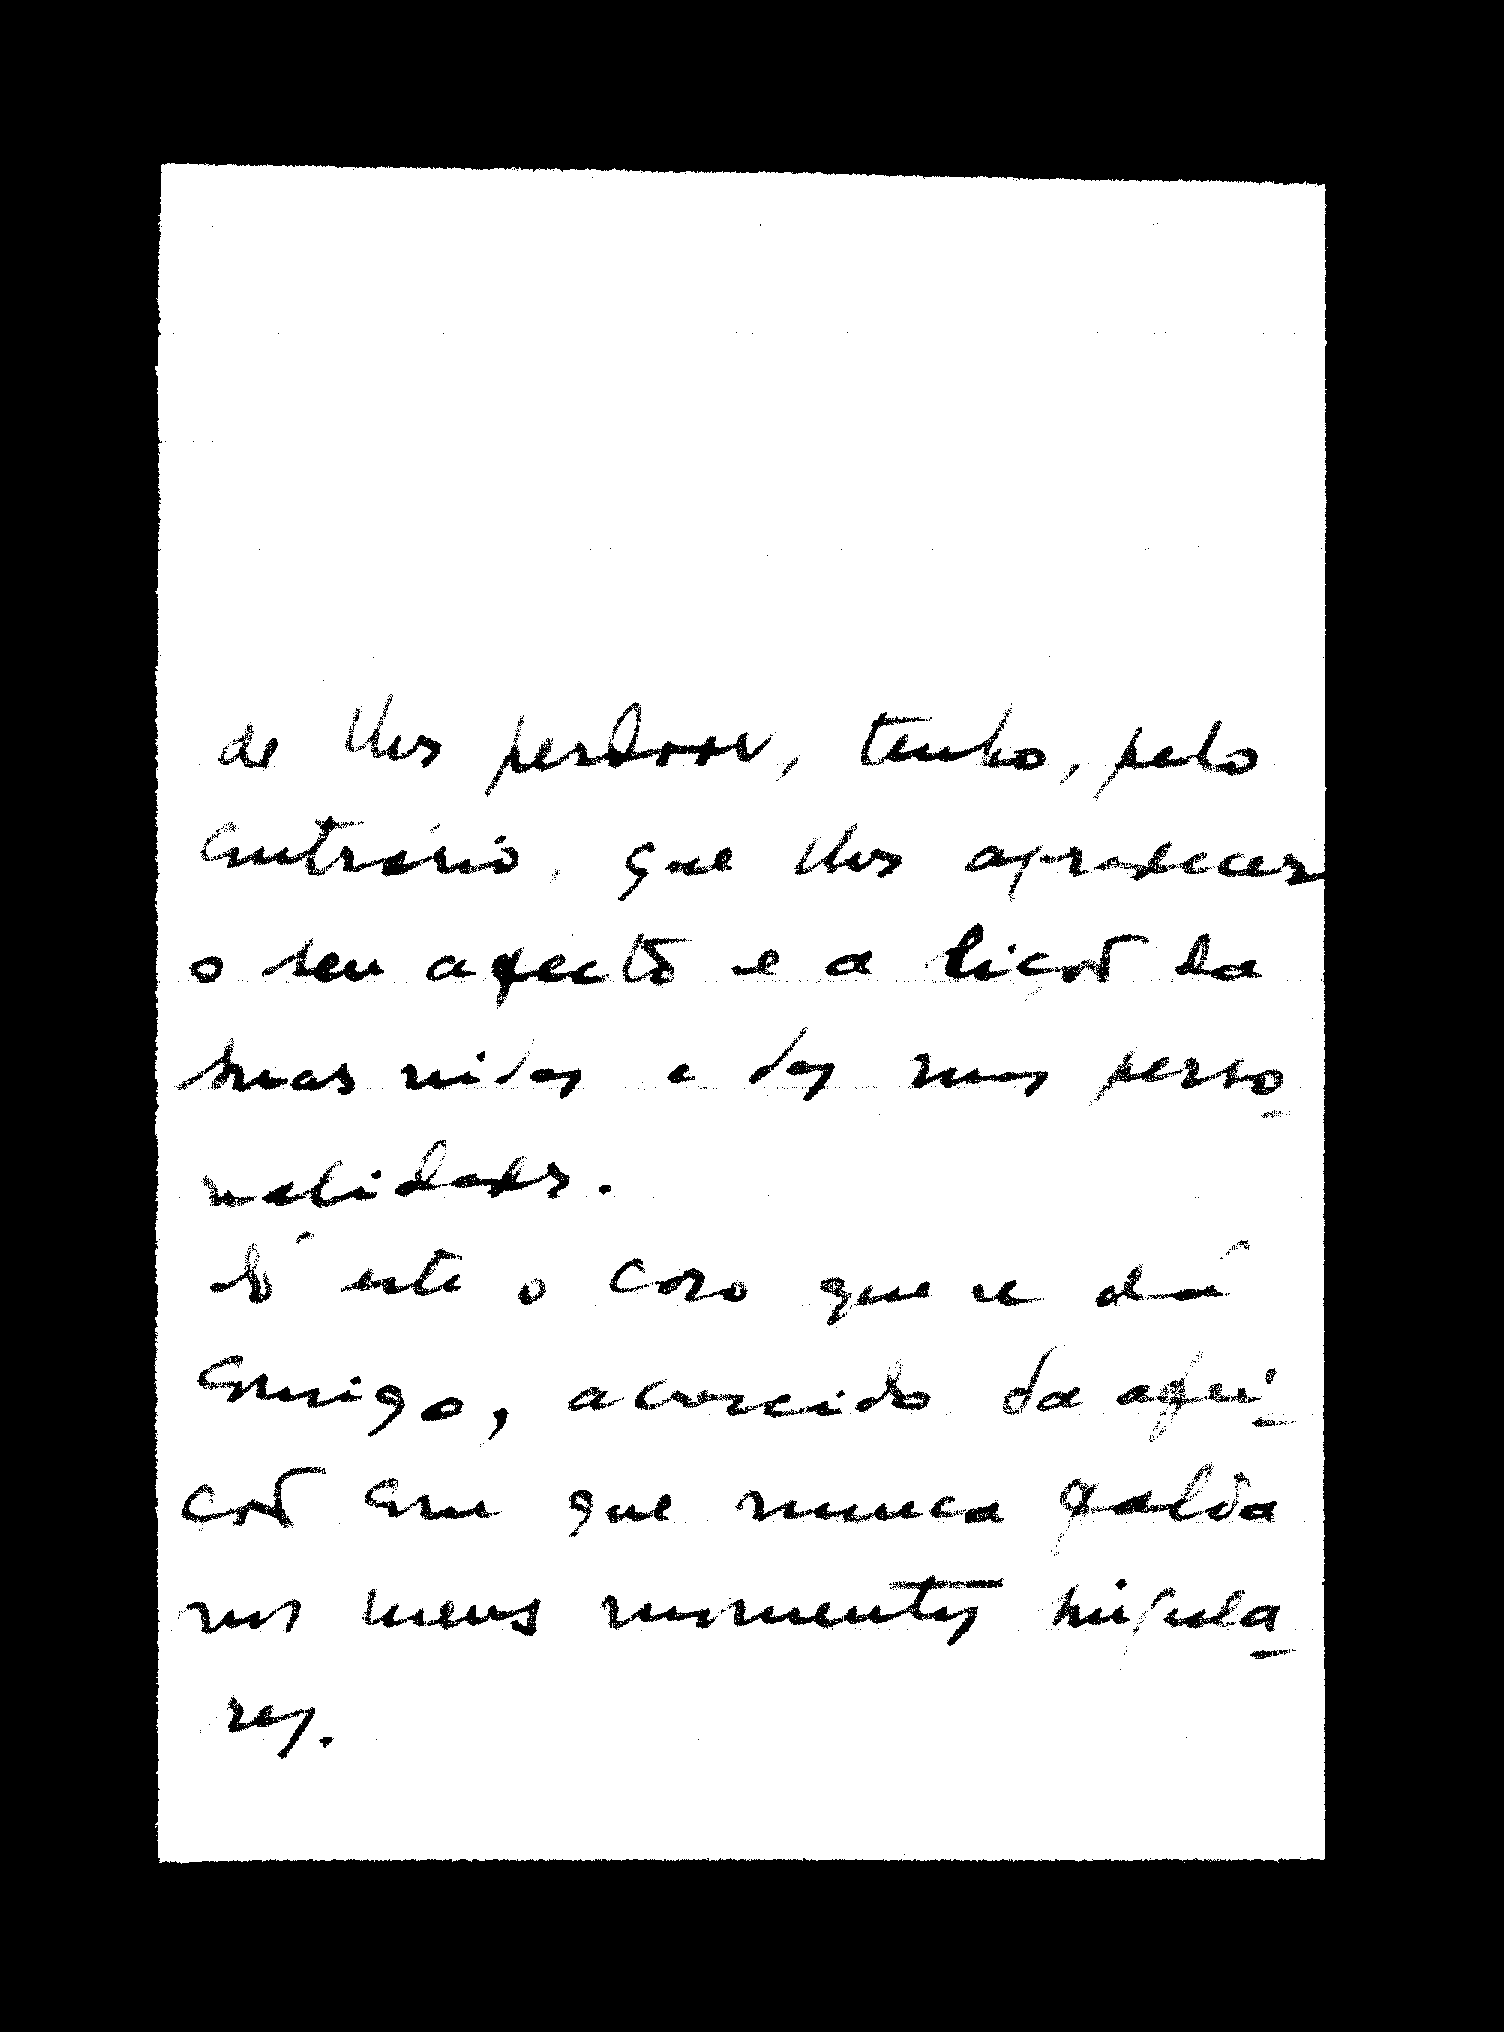 de lhes perdoar, tenho, pelo
contrário, que lhes agradecer
o seu afecto e a lição da
suas vidas e das suas perso
nalidades.
Só este o caso que se dá
comigo, acrescido da afei-
ção em que nunca
nos meus momentos singula
res.